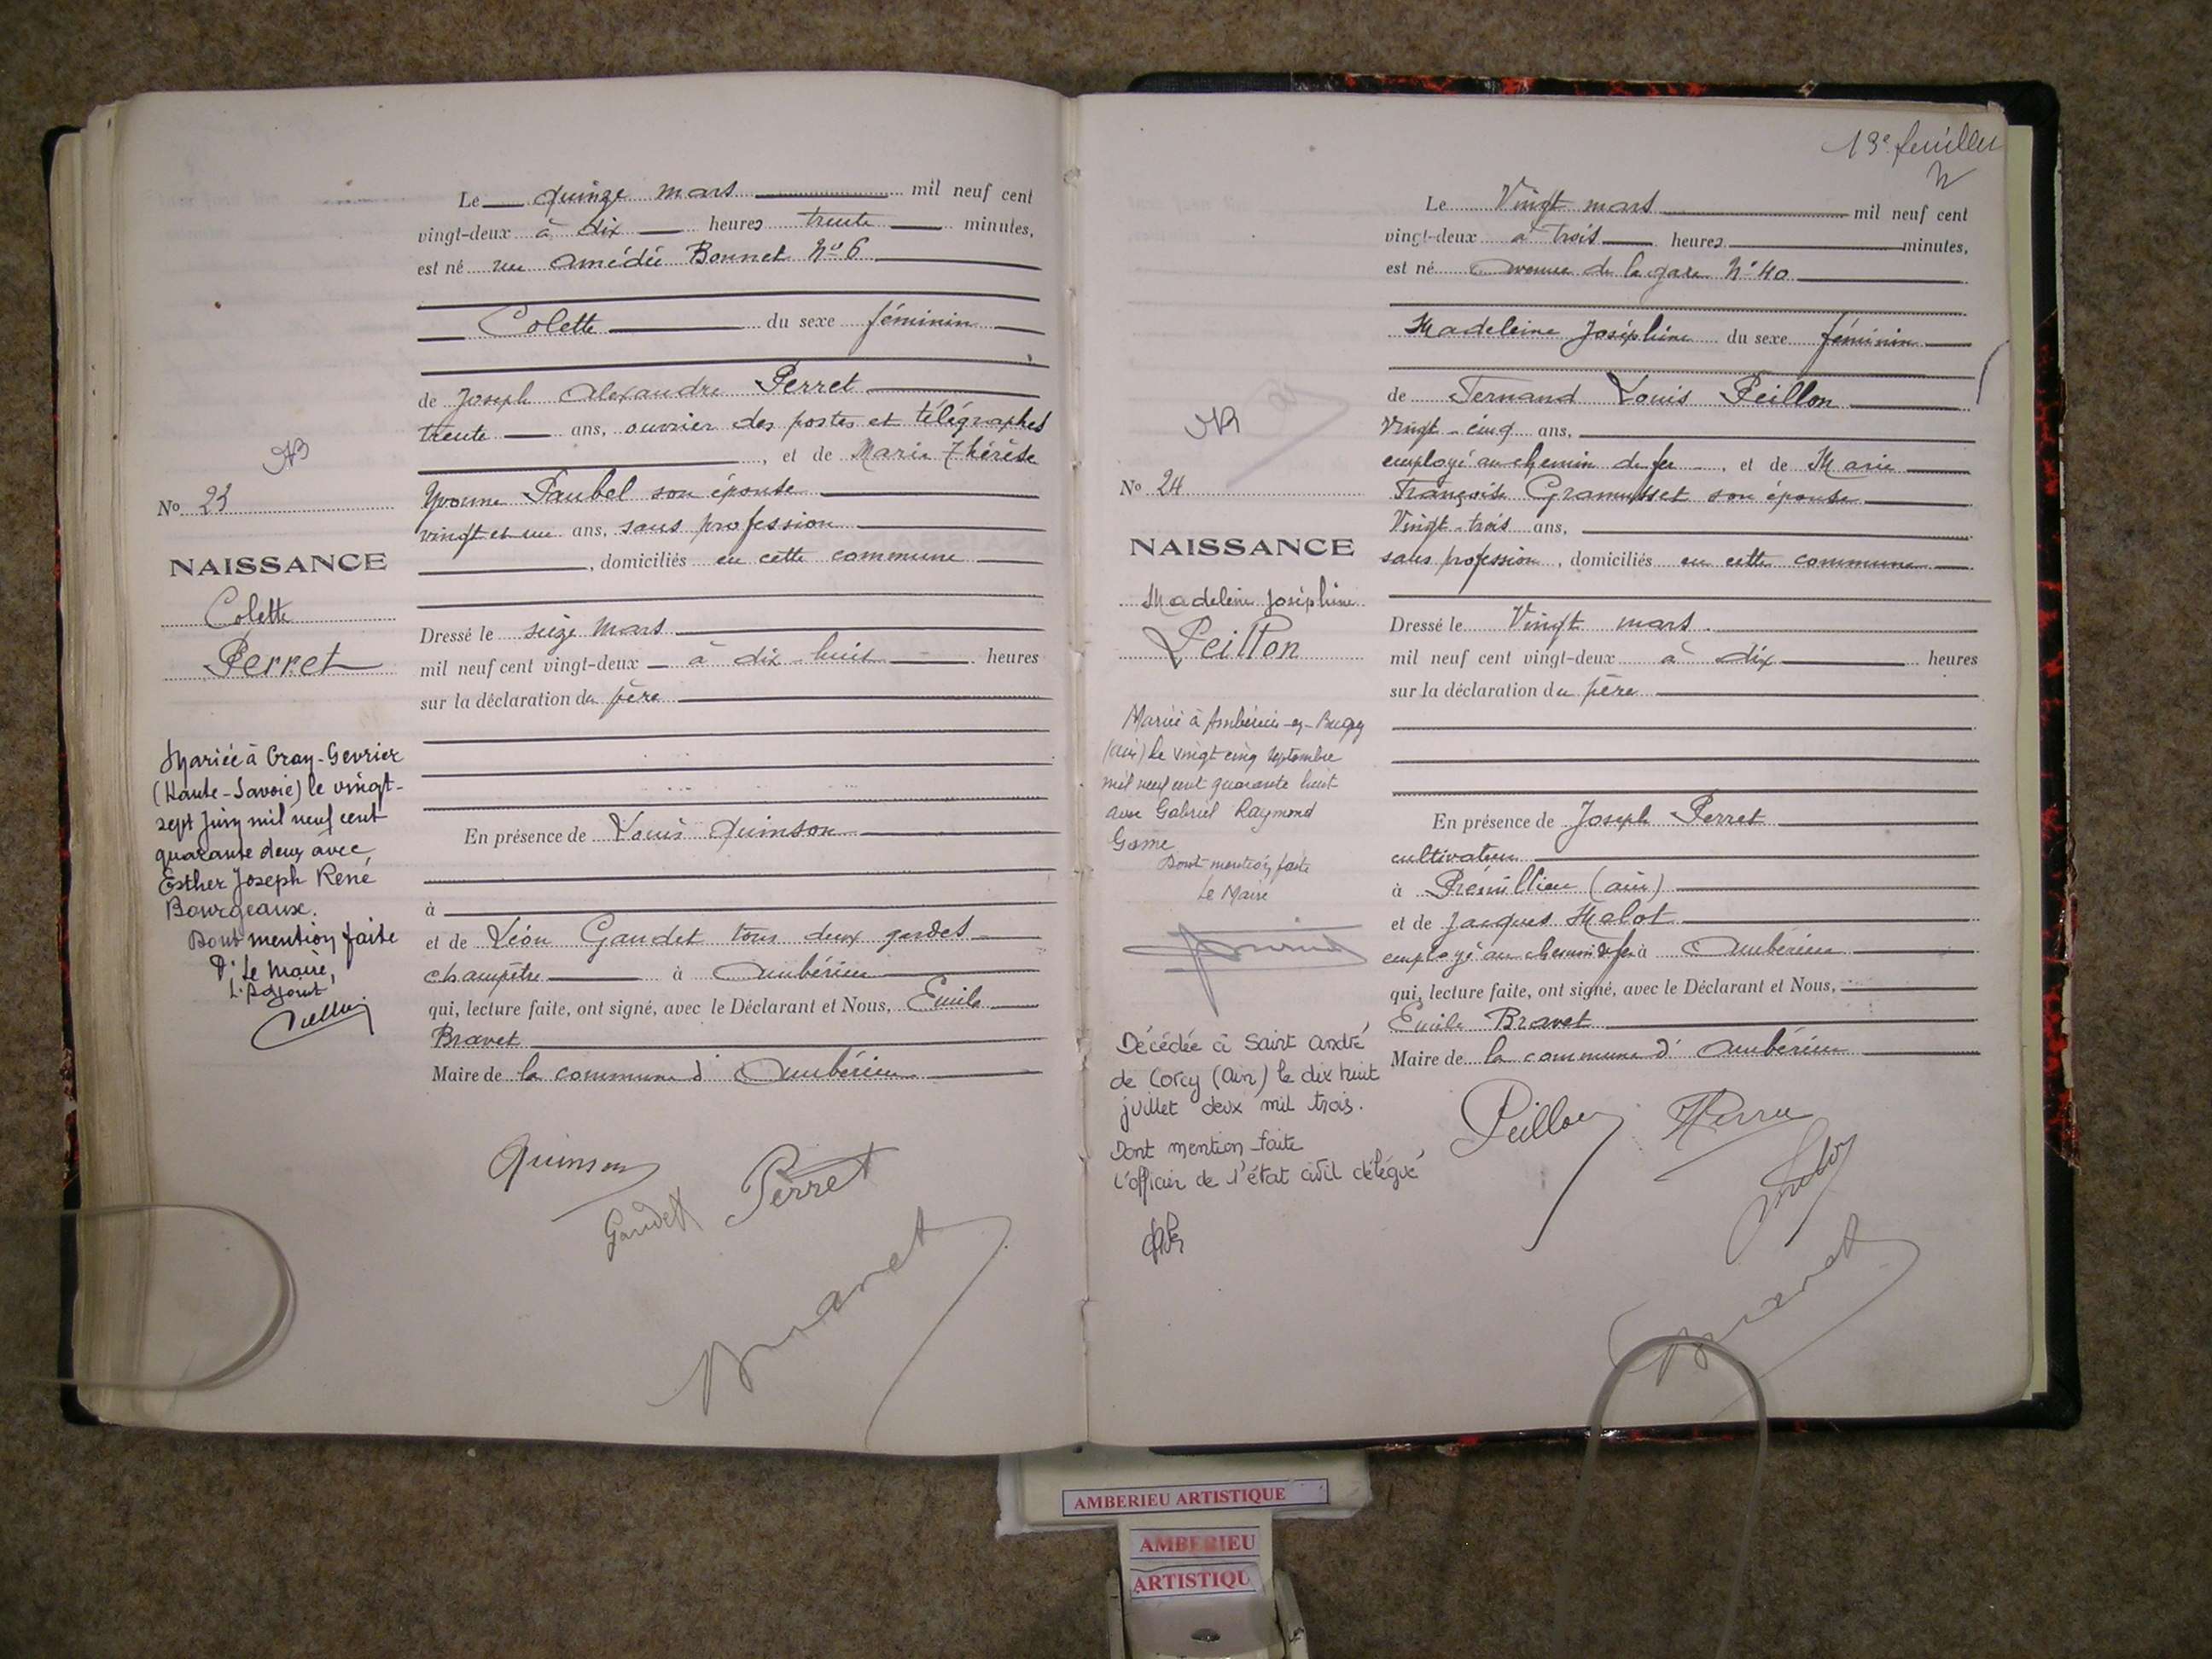 Le quinze mars mil neuf cent
vingt-deux à dix heures trente minutes,
est né rue Amédée Bonnet No 6
Colette du sexe féminin
de Joseph Alexandre Perret
trente ans, ouvrier des postes et télégraphes
, et de Marie Thérèse
Yvonne Faubel son épouse
vingt et un ans, sans profession
, domiciliés en cette commune
Dressé le seize Mars
mil neuf cent vingt-deux à dix huit heures
sur la déclaration du père
En présence de Louis Quinson
à
et de Léon Gaudet tous deux gardes
champêtre à Ambérieu
qui, lecture faite, ont signé, avec le Déclarant et Nous, Emile
Bravet
Maire de la commune d'Ambérieu
Quinson
Gaudet Perret
Bravet
No 23
NAISSANCE
Colette
Perret
Mariée à Cran-Gevrier
(Haute-Savoie) le vingt-
sept juin mil neuf cent
quarante deux avec
Esther Joseph René
Bourgeaux.
Dont mention faite
Pr Le Maire,
L'Adjoint
13e feuillet
Le Vingt mars mil neuf cent
vingt-deux à trois heures minutes,
est né Avenue de la gare No 40
Madeleine Joséphine du sexe féminin
de Fernand Louis Peillon
Vingt-cinq ans,
employé au chemin de fer, et de Marie
Françoise Gramusset son épouse
Vingt-trois ans,
sans profession, domiciliés en cette commune
Dressé le Vingt mars
mil neuf cent vingt-deux à dix heures
sur la déclaration du père
En présence de Joseph Perret
cultivateur
à Prémillieu (ain)
et de Jacques Malot
employé au chemin de fer à Ambérieu
qui, lecture faite, ont signé, avec le Déclarant et Nous,
Emile Bravet
Maire de la commune d'Ambérieu
Peillon Perret
Malot
Bravet
No 24
NAISSANCE
Madeleine Joséphine
Peillon
Mariée à Ambérieu-en-Bugey
(Ain) le vingt cinq septembre
mil neuf cent quarante huit
avec Gabriel Raymond
Game
Dont mention faite
Le Maire
Décédée à Saint André
de Corcy (Ain) le dix huit
juillet deux mil trois.
Dont mention faite
L'officier de l'état civil délégué
AMBERIEU ARTISTIQUE
AMBERIEU
ARTISTIQU